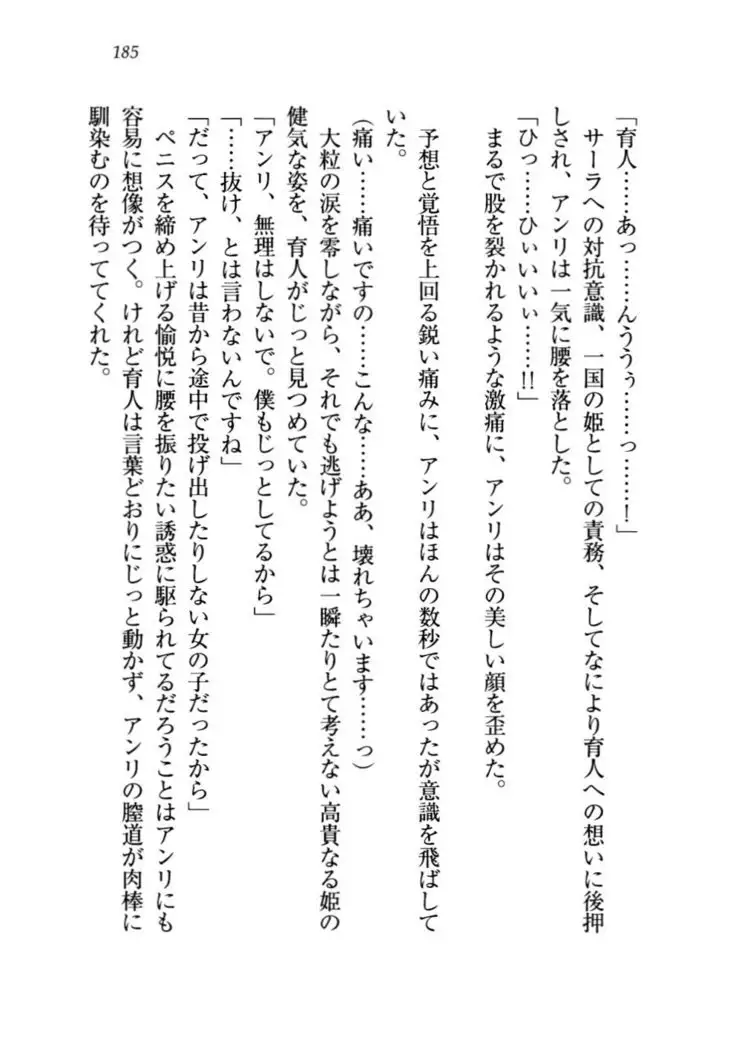 185
「育人……あっ……んううぅ……っ……！」
　サーラへの対抗意識、一国の姫としての責務、そしてなにより育人への想いに後押
しされ、アンリは一気に腰を落とした。
「ひっ……ひぃいいぃ……!!」
　まるで股を裂かれるような激痛に、アンリはその美しい顔を歪めた。
　予想と覚悟を上回る鋭い痛みに、アンリはほんの数秒ではあったが意識を飛ばして
いた。
（痛い……痛いですの……こんな……ああ、壊れちゃいます……っ）
　大粒の涙を零しながら、それでも逃げようとは一瞬たりとて考えない高貴なる姫の
健気な姿を、育人がじっと見つめていた。
「アンリ、無理はしないで。僕もじっとしてるから」
「……抜け、とは言わないんですね」
「だって、アンリは昔から途中で投げ出したりしない女の子だったから」
　ペニスを締め上げる愉悦に腰を振りたい誘惑に駆られてるだろうことはアンリにも
容易に想像がつく。けれど育人は言葉どおりにじっと動かず、アンリの膣道が肉棒に
馴染むのを待っててくれた。